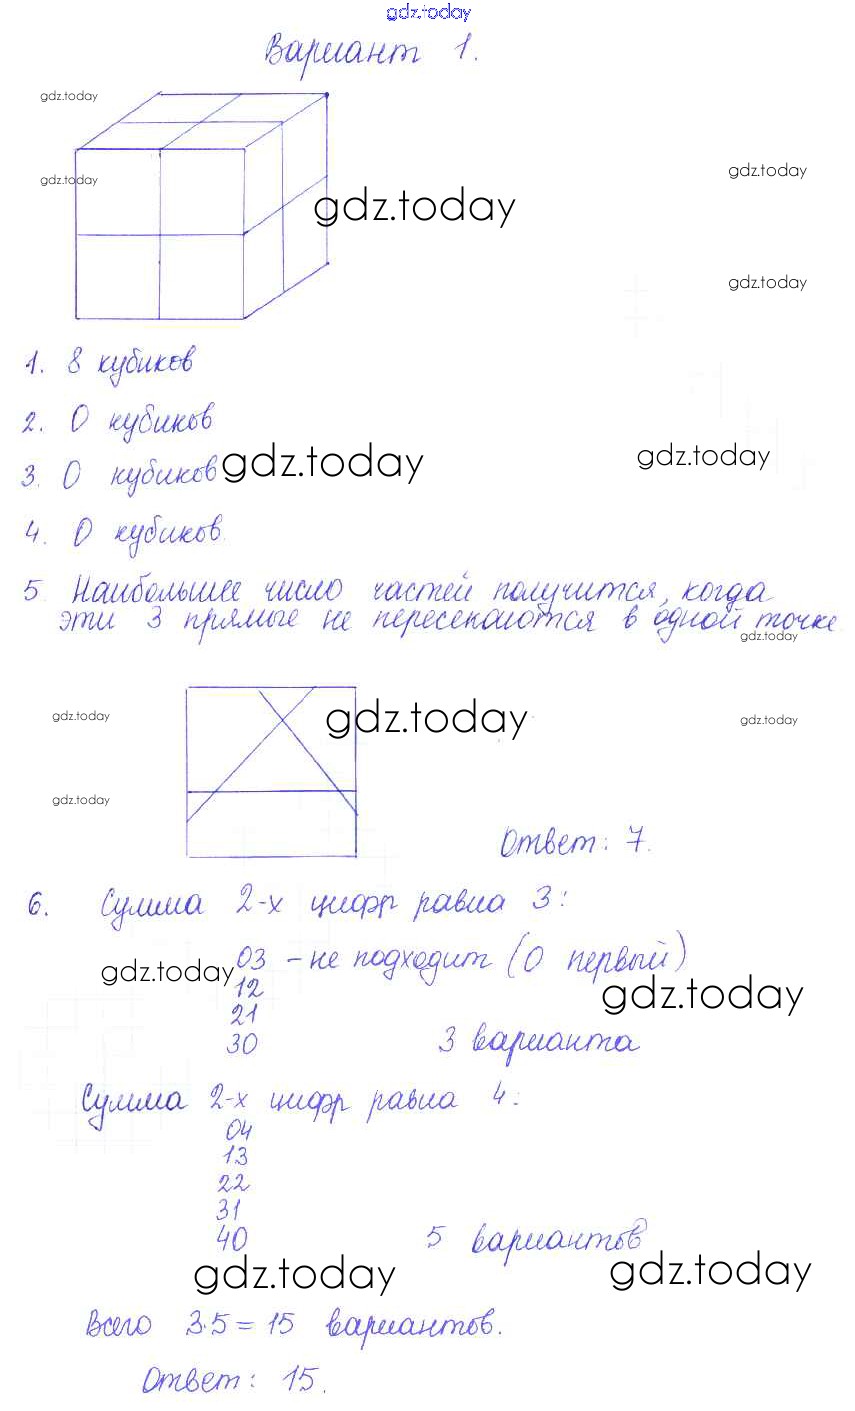 gdz.today
Вариант 1.
gdz.today
gdz.today
gdz.today
gdz.today
gdz.today
1. 8 кубиков
2. 0 кубиков
3. 0 кубиков gdz.today
gdz.today
4. 0 кубиков.
5. Наибольшее число частей получится, когда
эти 3 прямые не пересекаются в одной точке.
gdz.today
gdz.today
gdz.today
gdz.today
gdz.today
Ответ: 7.
6. Сумма 2-х цифр равна 3:
gdz.today 03 - не подходит (0 первый)
12
gdz.today
21
30 3 варианта
Сумма 2-х цифр равна 4:
04
13
22
31
40 5 вариантов
gdz.today gdz.today
Всего 3·5 = 15 вариантов.
Ответ: 15.